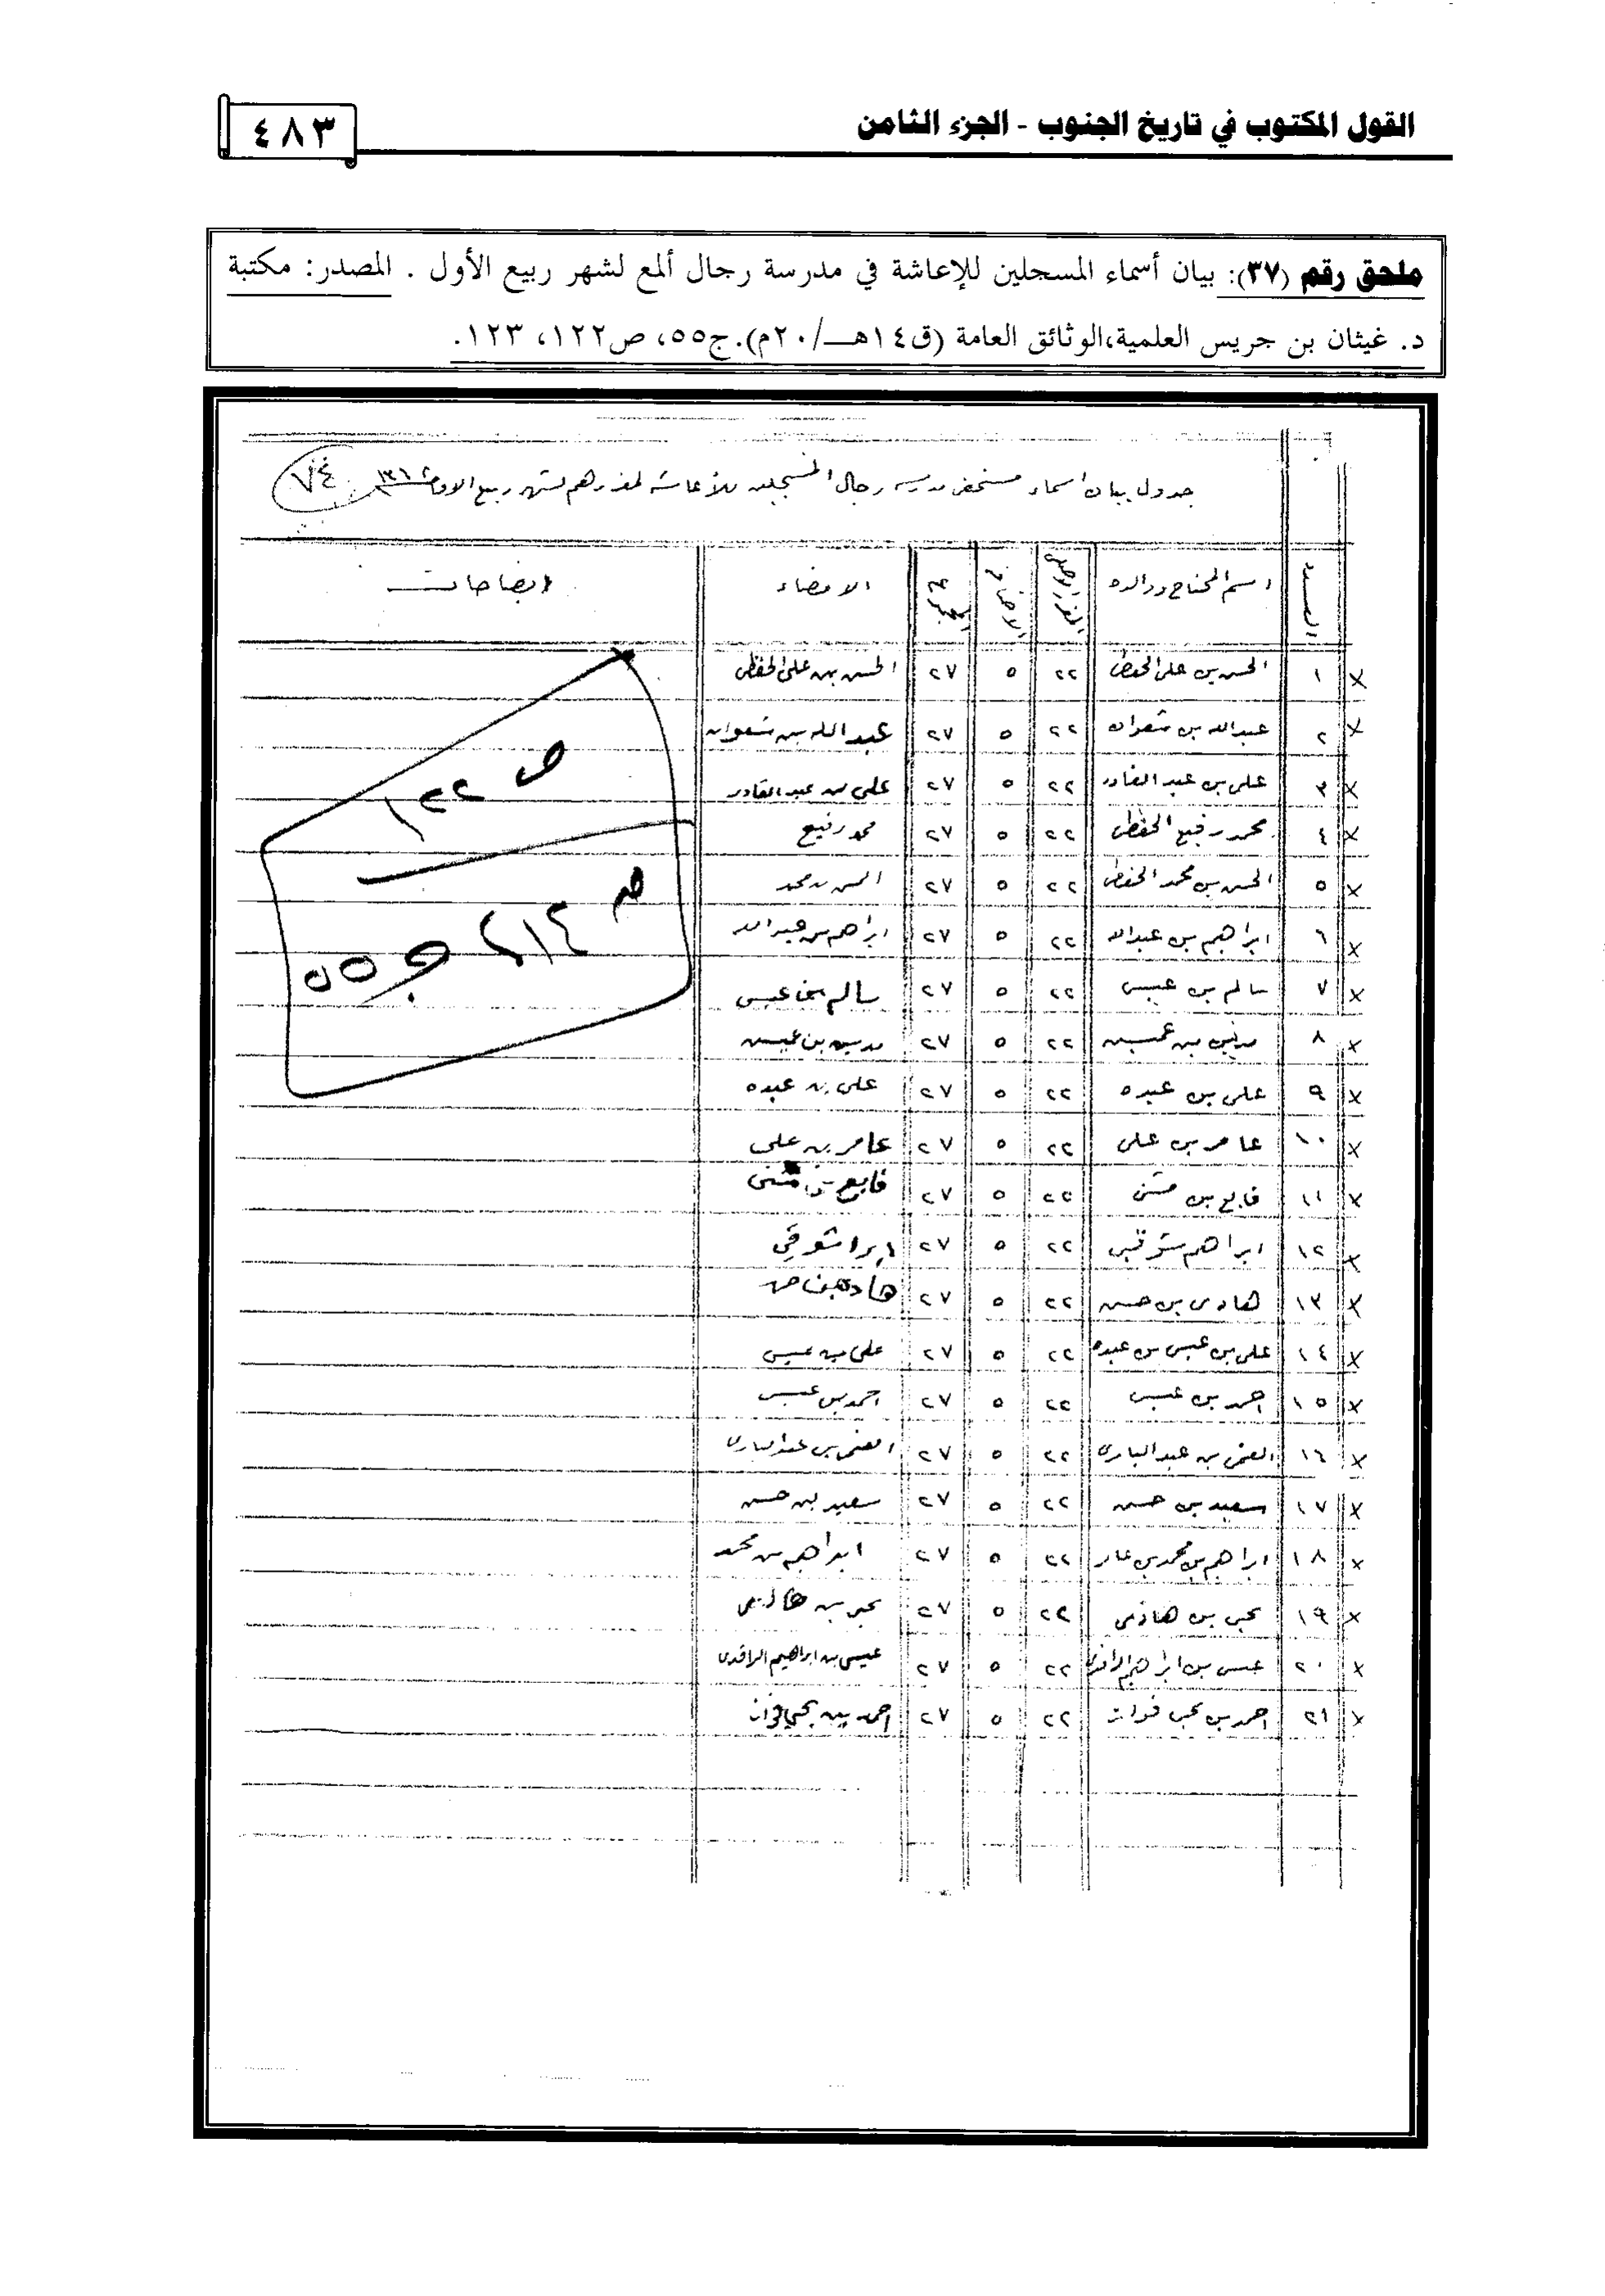 القول المكتوب في تاريخ الجنوب - الجزء الثامن
٤٨٣
ملحق رقم (٣٧): بيان أسماء المسجلين للإعاشة في مدرسة رجال ألمع لشهر ربيع الأول . المصدر: مكتبة
د. غيثان بن جريس العلمية،الوثائق العامة (ق١٤هـ/٢٠م).ج٥٥، ص١٢٢، ١٢٣.
جدول بيان اسماء مدرسة رجال المسجلين للأعاشة لشهر ربيع الاول ٧٤
العدد اسم المحتاج ووالده المقرر الاصلي الاضافي المجموع الامضاء ايضاحات
x ١ الحسن بن علي الحفظي ٢٢ ٥ ٢٧ الحسن بن علي الحفظي
x ٢ عبدالله بن شعوان ٢٢ ٥ ٢٧ عبد الله بن شعوان
x ٣ علي بن عبد القادر ٢٢ ٥ ٢٧ علي بن عبد القادر
x ٤ محمد رفيع الحفظي ٢٢ ٥ ٢٧ محمد رفيع
x ٥ الحسن بن محمد الحفظي ٢٢ ٥ ٢٧ الحسن بن محمد
x ٦ ابراهيم بن عبدالله ٢٢ ٥ ٢٧ ابراهيم بن عبدالله
x ٧ سالم بن عيسى ٢٢ ٥ ٢٧ سالم بن عيسى
x ٨ بن ٢٢ ٥ ٢٧ بن
x ٩ علي بن عبده ٢٢ ٥ ٢٧ علي بن عبده
x ١٠ عامر بن علي ٢٢ ٥ ٢٧ عامر بن علي
x ١١ فايع بن مشني ٢٢ ٥ ٢٧ فايع بن مشني
x ١٢ ابراهيم شوقي ٢٢ ٥ ٢٧ ابرا شوقي
x ١٣ هادي بن حسن ٢٢ ٥ ٢٧ هادي بن حسن
x ١٤ علي بن عيسى بن عبده ٢٢ ٥ ٢٧ علي بن عيسى
x ١٥ احمد بن عيسى ٢٢ ٥ ٢٧ احمد بن عيسى
x ١٦ بن عبد الباري ٢٢ ٥ ٢٧ بن عبد الباري
x ١٧ سعيد بن حسن ٢٢ ٥ ٢٧ سعيد بن حسن
x ١٨ ابراهيم بن محمد بن ٢٢ ٥ ٢٧ ابراهيم بن محمد
x ١٩ يحيى بن هادي ٢٢ ٥ ٢٧ يحيى بن هادي
x ٢٠ عيسى بن ابراهيم الراقدي ٢٢ ٥ ٢٧ عيسى بن ابراهيم الراقدي
x ٢١ احمد بن يحيى فوزان ٢٢ ٥ ٢٧ احمد بن يحيى فوزان
ص ١٢٢
ص ٢١٢ ج ٥٥